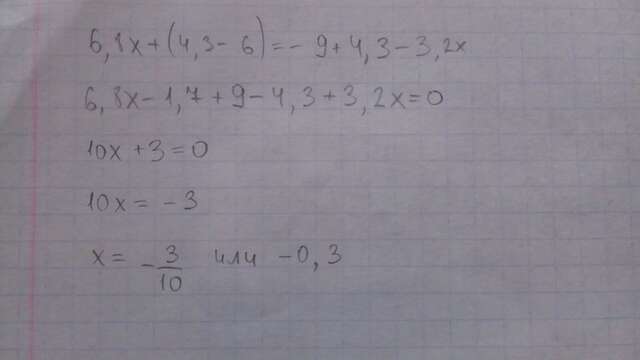 6,8x+(4,3-6)=-9+4,3-3,2x
6,8x-1,7+9-4,3+3,2x=0
10x+3=0
10x=-3
x=-3/10 или -0,3